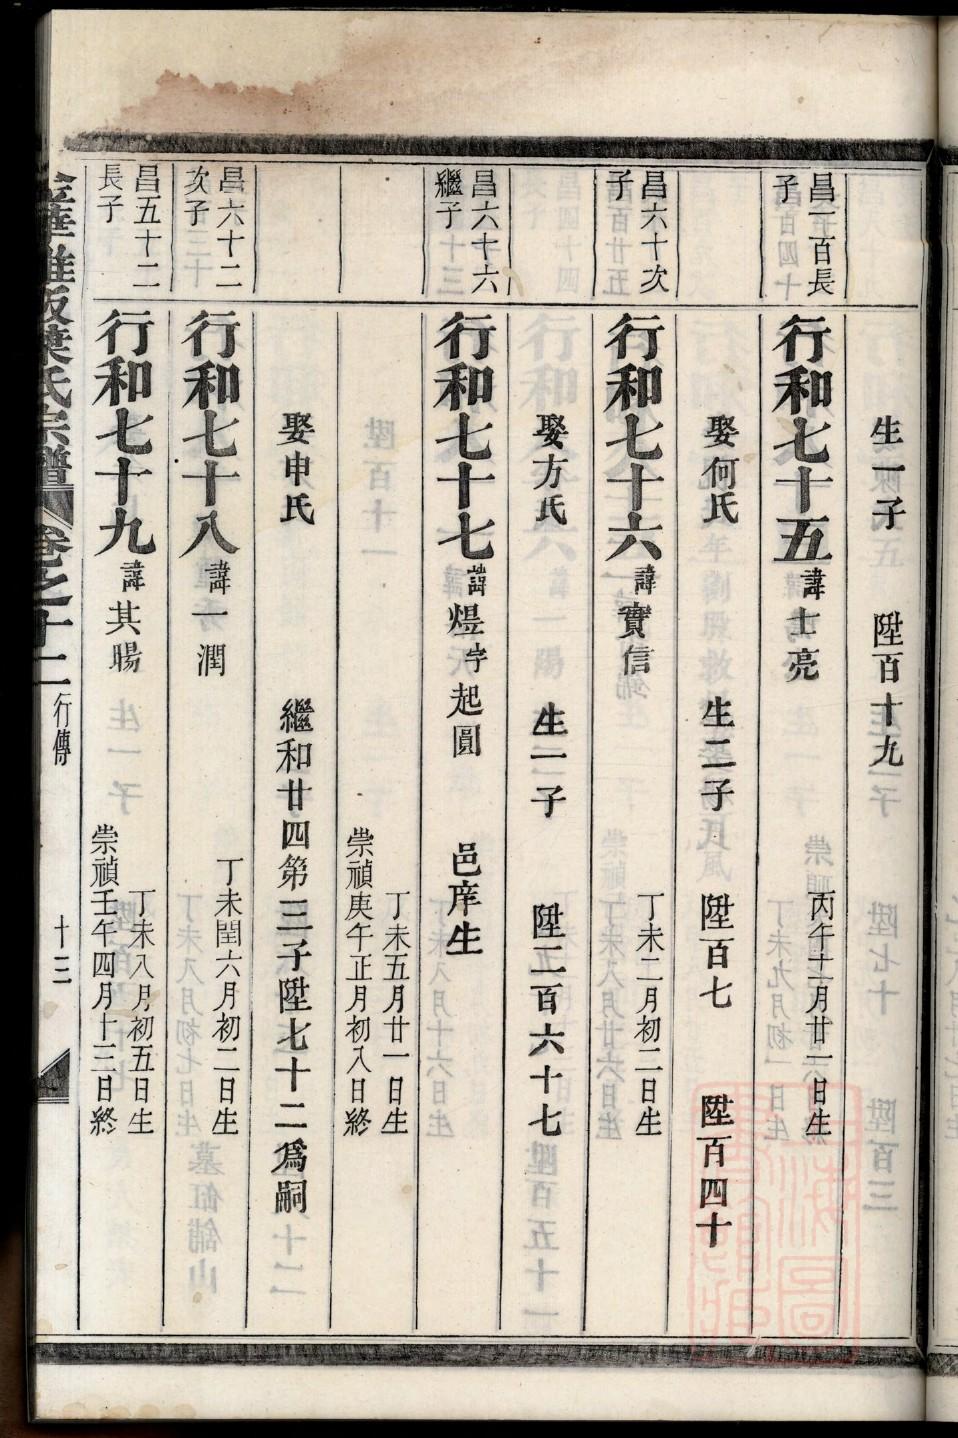 生一子 陞百十九
昌一百長子
行和七十五 諱士亮 丙午十二月廿一日生
娶何氏 生二子 陞百七 陞百四十
昌六十次子
行和七十六 諱實信 丁未二月初二日生
娶方氏 生二子 陞五百六十七
昌六十六繼子
行和七十七 諱煜字起圓 邑庠生
丁未五月廿一日生
崇禎庚午正月初八日終
娶申氏 繼和廿四第三子陞七十二爲嗣
昌六十二次子
行和七十八 諱一潤 丁未閏六月初二日生
昌五十二長子
行和七十九 諱其暘 丁未八月初五日生
崇禎壬午四月十三日終
葉氏宗譜 卷之十二 行傳 十三